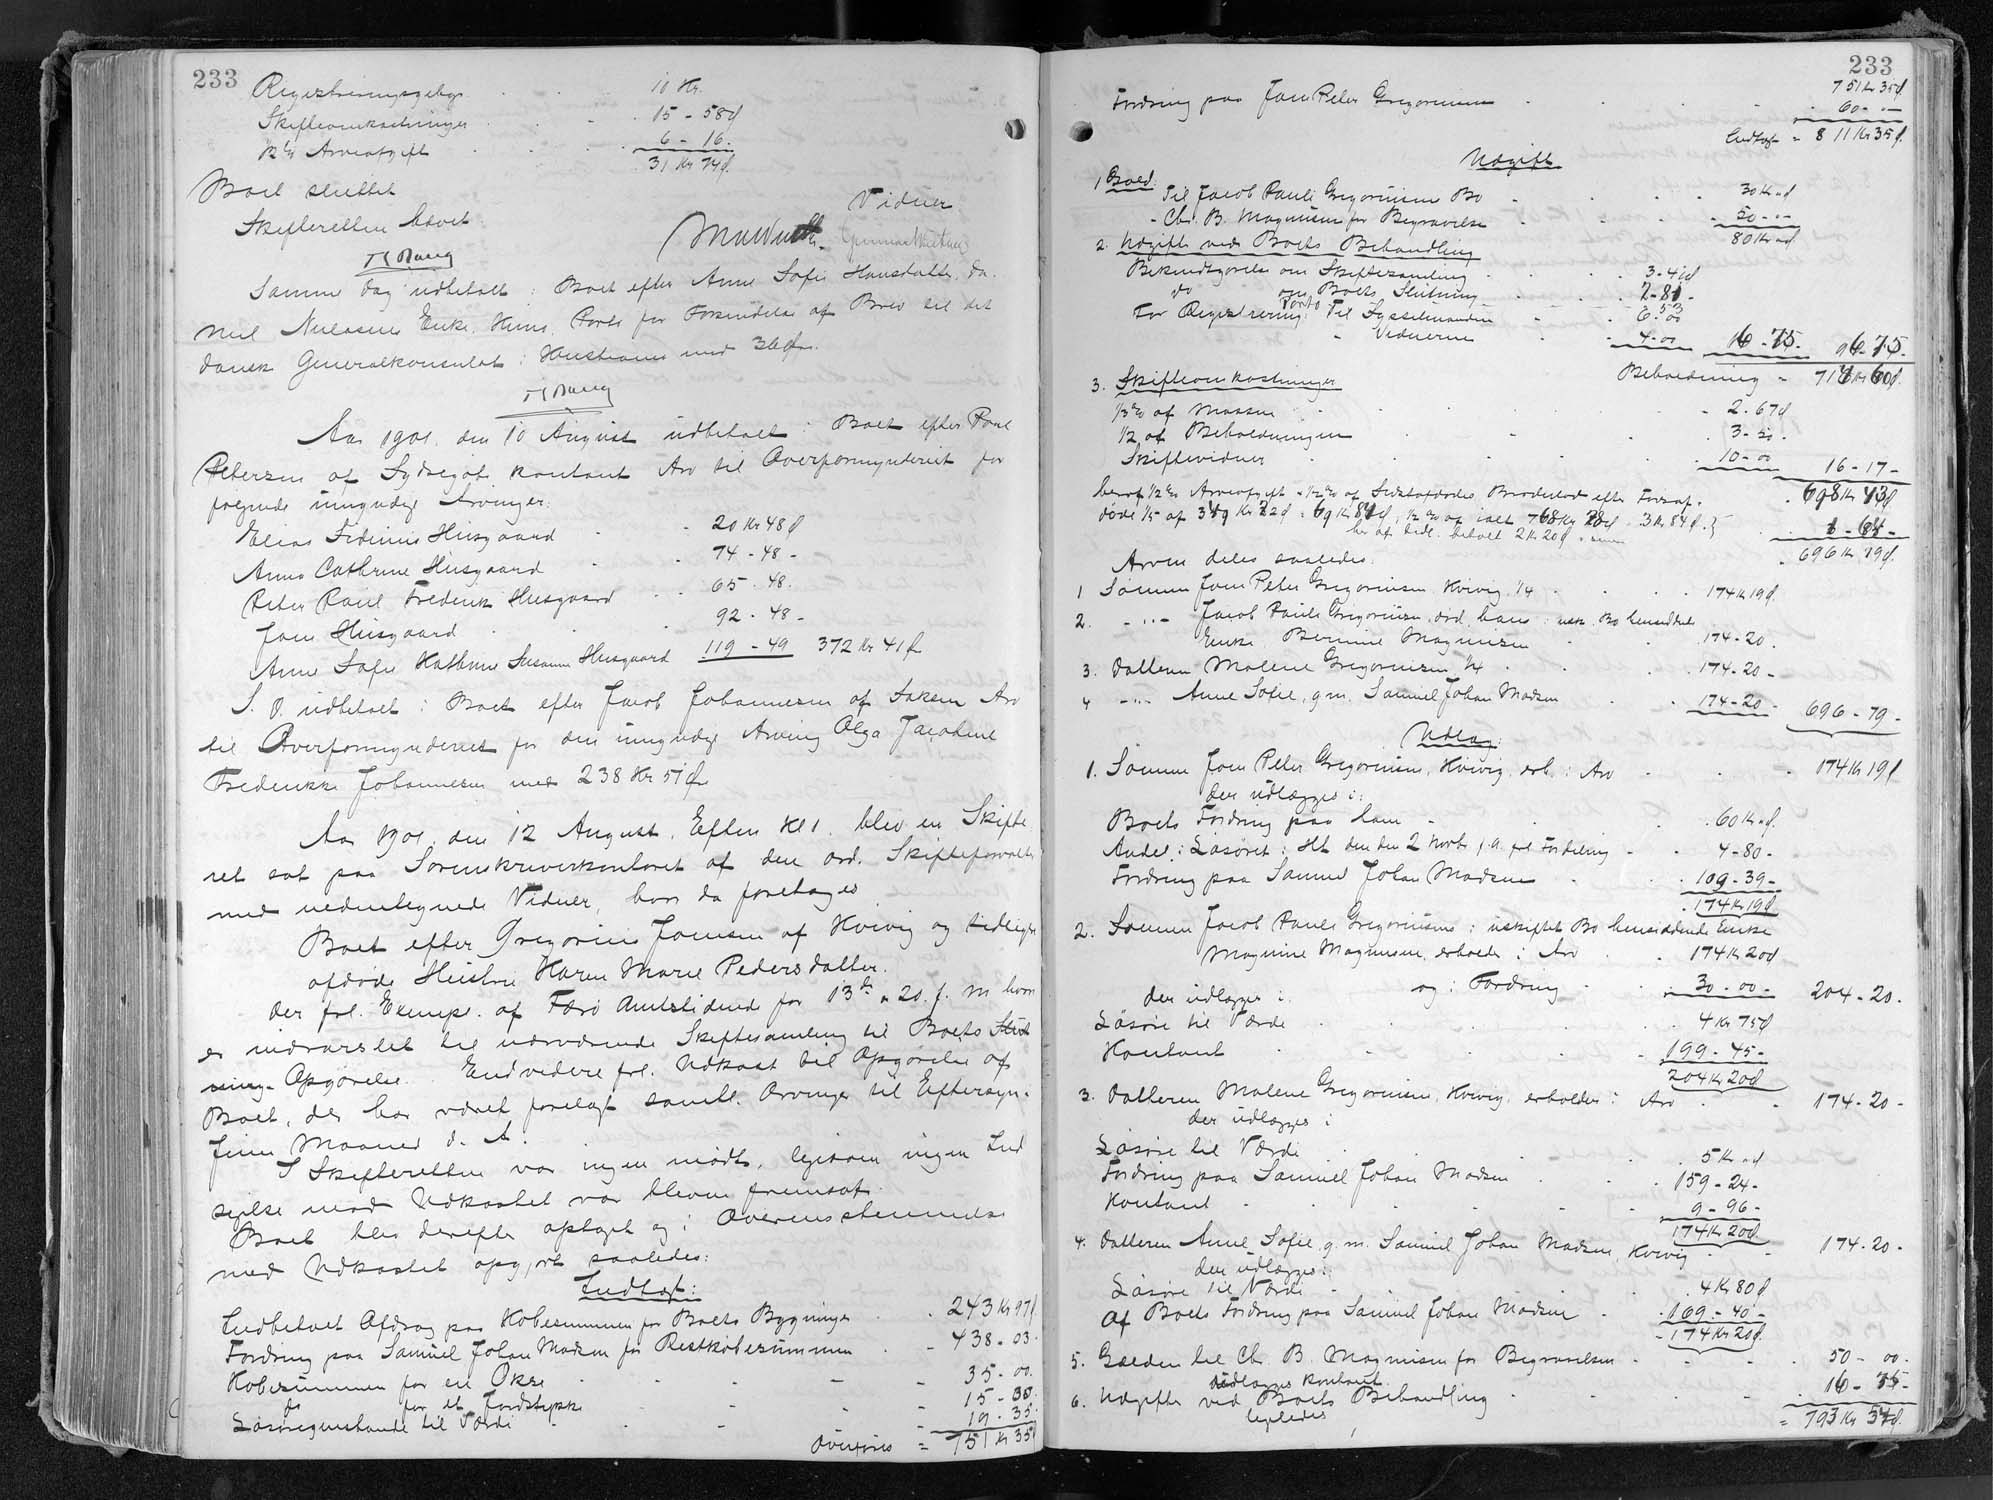 233
Registreringsgebyr 10 Kr.
Skifteomkostninger 15 - 58 ø
1/2 % Arveafgift 6 - 16.
31 Kr 74 ø.
Boet sluttet
Skifteretten hævet.
Vidner
Samme Dag udbetalt i Boet efter Anne Sofie Hansdatter, Da-
niel Nielsens Enke, Porto for Forsendelse af Brev til det
danske Generalkonsulat i med 36 Øre.
Aar 1901 den 10 August udbetalt i Boet efter Poul
Petersen af Sydregöt kontant Arv til Overformynderiet for
følgende umyndige Arvinger:
Elias Husgaard 20 Kr 48 ø
Anna Cathrine Husgaard 74 - 48 -
Peter Poul Frederik Husgaard 65 - 48.
Joen Husgaard 92 - 48 -
Anne Sofie Kathrine Susanne Husgaard 119 - 49 372 Kr 41 ø
S. D. udbetalt i Boet efter Jacob Johannesen af Saksen Arv
til Overformynderiet for den umyndige Arving Olga Jacobine
Frederikke Johannesen med 238 Kr 51 ø
Aar 1901 den 12 August, Efterm. Kl 1 blev en Skifte
ret sat paa Sorenskriverkontoret af den ord. Skifteforvalter
med undertegnede Vidner, hvor da foretages
Boet efter Gregorius Joensen af Kvivig og tidligere
afdøde Hustru Karen Marie Pedersdatter.
Der frl. Exempl. af Færø Amtstidende for 13de & 20. f. M hvori
er indvarslet til nærværende Skiftesamling til Boets Slut
ning - Opgörelse. Endvidere frl. Udkast til Opgörelse af
Boet, der har været forelagt samtl. Arvinger til Eftersyn.
I Skifteretten var ingen mødt, ligesom ingen Ind
sigelse mod Udkastet var bleven fremsat.
Boet blev derefter optaget og i Overensstemmelse
med Udkastet opgjort saaledes:
Indtægt:
Indbetalt Afdrag paa Köbesummen for Boets Bygninger 243 Kr 97 ø
Fordring paa Samuel Johan Madsen for Restköbesummen - 438 - 03.
Köbesummen for en Okse - 35 - 00.
do for et Jordstykke - 15 - 00.
Lösöregenstande til Værdi - 19 - 35.
Overføres = 751 Kr 35 ø
233
751 Kr 35 ø
Fordring paa Joen Peter Gregoriusen 60 - -
Indtægt = 811 Kr 35 ø.
Udgift
1 Gæld:
Til Jacob Pauli Gregoriusens Bo 30 Kr - ø
- Chr. B. Magnusen for Begravelse 50 - -
80 Kr - ø
2. Udgifter ved Boets Behandling
Bekendtgörelse om Skiftesamling 3 - 41 ø
do om Boets Slutning 2 - 81 -
Porto 53
For Registrering: Til Sysselmanden 6 - 00
- Vidnerne 4 - 00 16 - 75 - 96 - 75 -
Beholdning = 714 Kr 60 ø.
3. Skifteomkostninger
1/3 % af Massen 2. 67 ø
1/2 af Beholdningen 3 - 50.
Skiftevidner 10 - 00 16 - 17 -
698 Kr 43 ø
696 Kr 79 ø.
Arven deles saaledes:
1 Sönnen Joen Peter Gregoriusen Kvivig 1/4 174 Kr 19 ø.
2. - " - Jacob Pauli Gregoriusen, död, hans i usk. Bo hensiddende
Enke Magnusen 174 - 20.
3. Datteren Malene Gregoriusen 1/4 174 - 20 -
4 - " - Anne Sofie, g. m. Samuel Johan Madsen 174 - 20 - 696 - 79 -
Udlæg:
1. Sönnen Joen Peter Gregoriusen, Kvivig, erh. i Arv 174 Kr 19 ø
der udlægges i:
Boets Fordring paa ham 60 Kr - ø.
Andel i Lösöret: Alt den den 2 Novb f. A. frl. Fordeling 4 - 80 -
Fordring paa Samuel Johan Madsen 109 - 39 -
174 Kr 19 ø
2. Sönnen Jacob Pauli Gregoriusens i uskiftet Bo hensiddende Enke
Magnusen, erholder i Arv 174 Kr 20 ø
og i Fordring 30 - 00 - 204 - 20.
der udlægges i:
Lösöre til Værdi 4 Kr 75 ø
Kontant 199 - 45 -
204 Kr 20 ø
3. Datteren Malene Gregoriusen, Kvivig, erholder i Arv 174 - 20 -
der udlægges i
Lösöre til Værdi 5 Kr - ø
Fordring paa Samuel Johan Madsen 159 - 24 -
Kontant 9 - 96 -
174 Kr 20 ø.
4. Datteren Anne Sofie, g. m. Samuel Johan Madsen, Kvivig 174 - 20 -
der udlægges i:
Lösöre til Værdi 4 Kr 80 ø
Af Boets Fordring paa Samuel Johan Madsen 169 - 40 -
174 Kr 20 ø.
5. Gælden til Chr. B. Magnusen for Begravelsen 50 - 00 -
udlægges kontant
6. Udgifter ved Boets Behandling 16 - 75 -
ligeledes
= 793 Kr 54 ø.